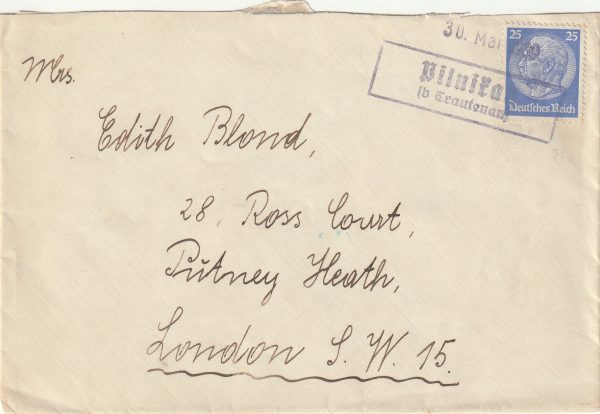 30. Mai
25 25
Deutsches Reich
Pilnika
(b Trautenau)
Mrs.
Edith Blond,
28, Ross Court,
Putney Heath,
London S. W. 15.